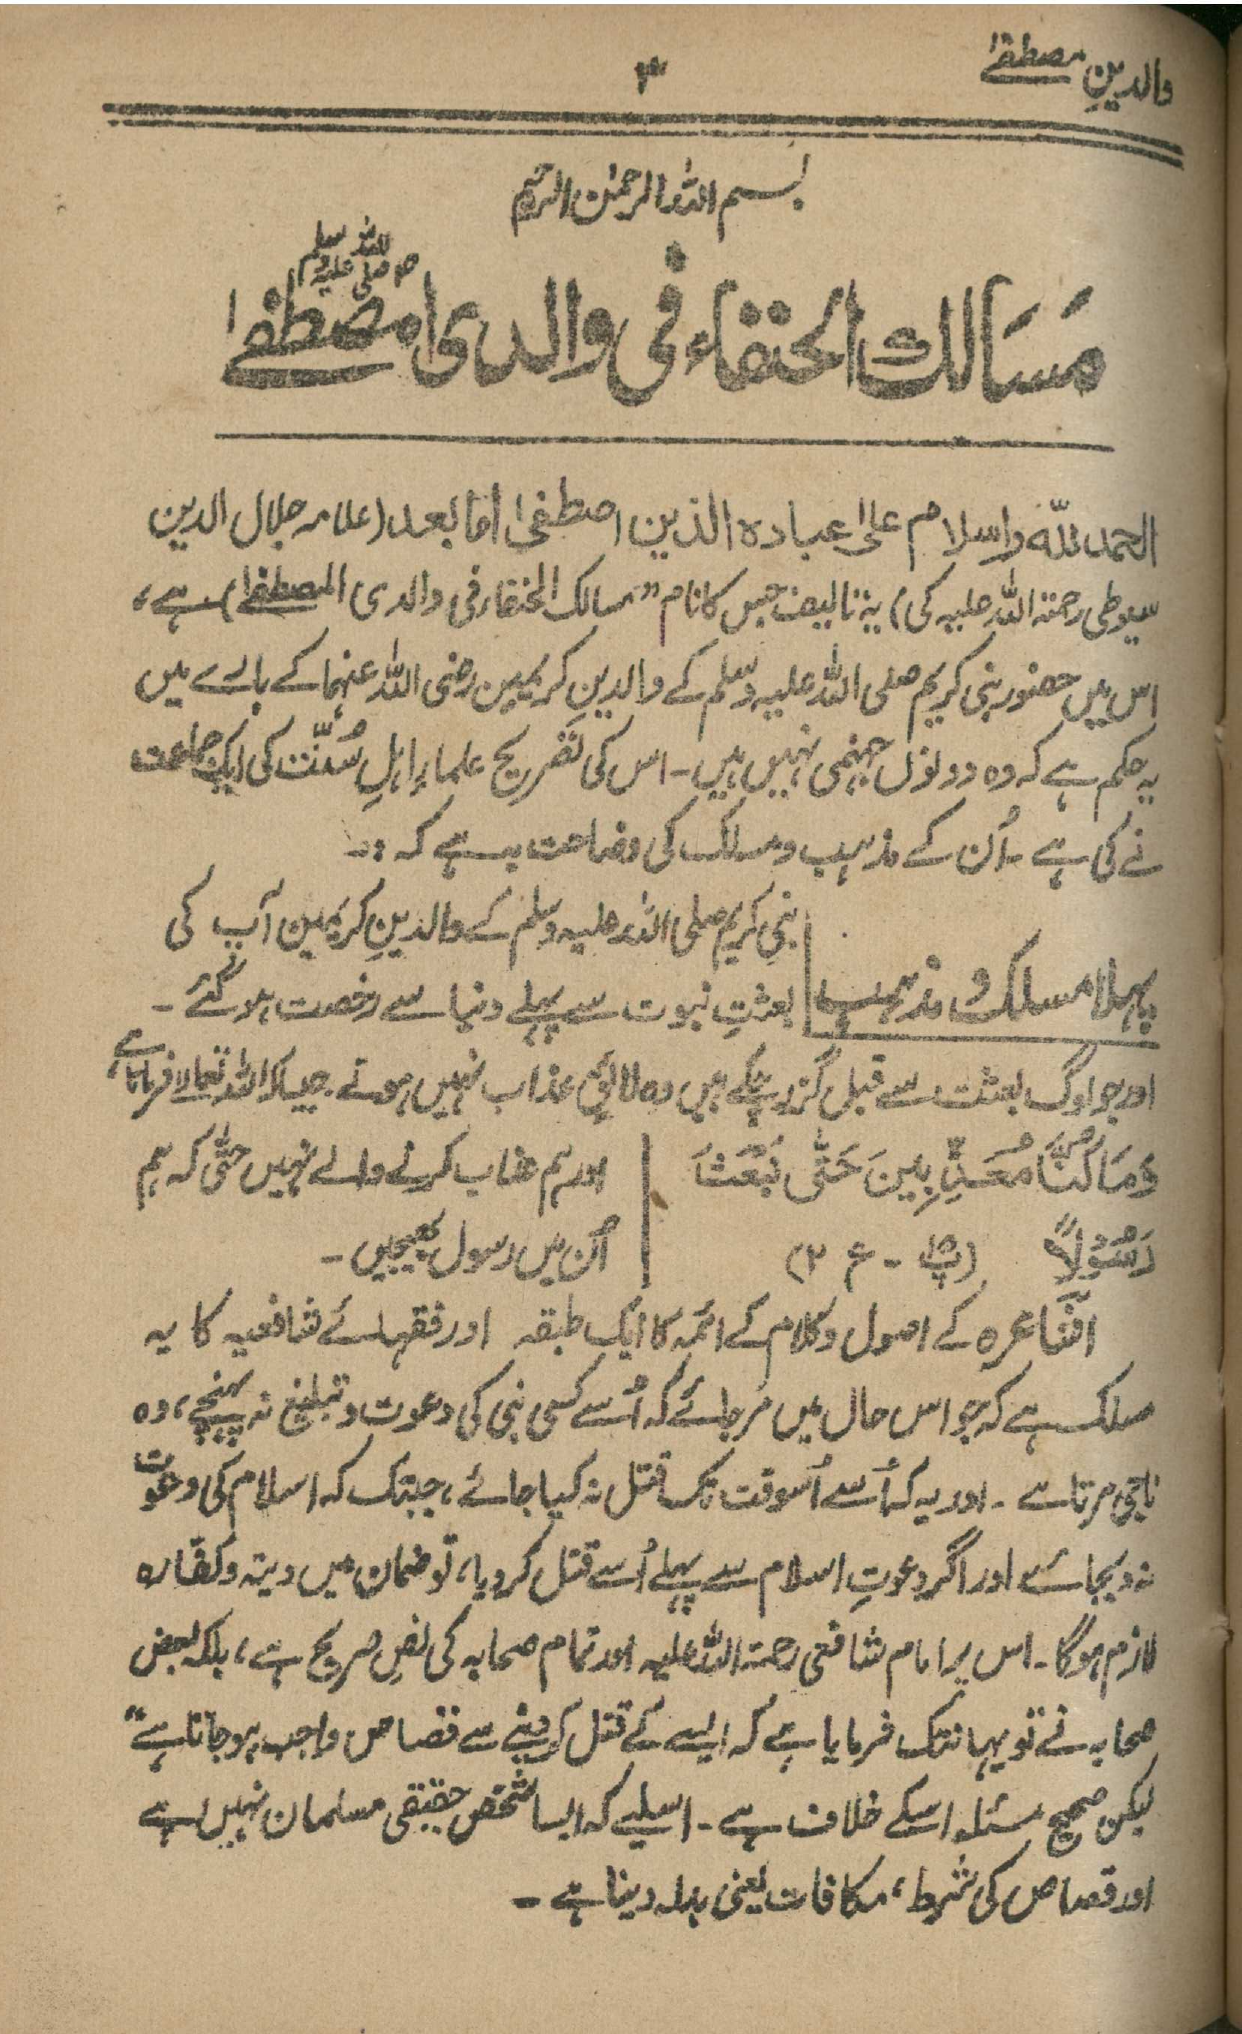 والدینِ مصطفےٰ
۳
بسم اللہ الرحمٰن الرحیم
صلی اللہ علیہ وسلم
مَسَالک الحنفاء فی والدی المصطفےٰ
الحمد للہ واسلام علیٰ عبادہ الذین اصطفیٰ اما بعد (علامہ جلال الدین
سیوطی رحمۃ اللہ علیہ کی) یہ تالیف جس کا نام "مسالک الحنفاء فی والدی المصطفےٰ) ہے،
اس میں حضور نبی کریم صلی اللہ علیہ وسلم کے والدینِ کریمین رضی اللہ عنہما کے بارے میں
یہ حکم ہے کہ وہ دونوں جہنمی نہیں ہیں۔ اس کی تصریح علماءِ اہلِ سُنّت کی ایک جماعت
نے کی ہے ۔ اُن کے مذہب و مسلک کی وضاحت یہ ہے کہ :۔
پہلا مسلک و مذہب
نبی کریم صلی اللہ علیہ وسلم کے والدینِ کریمین آپ کی
بعثتِ نبوت سے پہلے دنیا سے رخصت ہو گئے ۔
اور جو لوگ بعثت سے قبل گزر چکے ہیں وہ لائقِ عذاب نہیں ہوتے جیسا کہ اللہ تعالےٰ فرماتا ہے،
وَمَا كُنَّا مُعَذِّبِينَ حَتّٰى نَبْعَثَ
رَسُوْلًا (پ ۱۵ - ع ۲)
اور ہم عذاب کرنے والے نہیں حتّٰی کہ ہم
اُن میں رسول بھیجیں ۔
اشاعرہ کے اصول و کلام کے ائمہ کا ایک طبقہ اور فقہائے شافعیہ کا یہ
مسلک ہے کہ جو اس حال میں مر جائے کہ اُسے کسی نبی کی دعوت و تبلیغ نہ پہنچے، وہ
ناجی مرتا ہے ۔ اور یہ کہ اُسے اُسوقت تک قتل نہ کیا جائے، جبتک کہ اسلام کی دعوت
نہ دیجائے اور اگر دعوتِ اسلام سے پہلے اُسے قتل کر دیا، تو ضمان میں دیتہ و کفّارہ
لازم ہوگا۔ اس پر امام شافعی رحمۃ اللہ علیہ اور تمام صحابہ کی نصِ صریح ہے، بلکہ بعض
صحابہ نے تو یہانتک فرمایا ہے کہ ایسے کے قتل کر دینے سے قصاص واجب ہو جاتا ہے"
لیکن صحیح مسئلہ اسکے خلاف ہے ۔ اسلیے کہ ایسا شخص حقیقی مسلمان نہیں ہے
اور قصاص کی شرط، مکافات یعنی بدلہ دینا ہے ۔